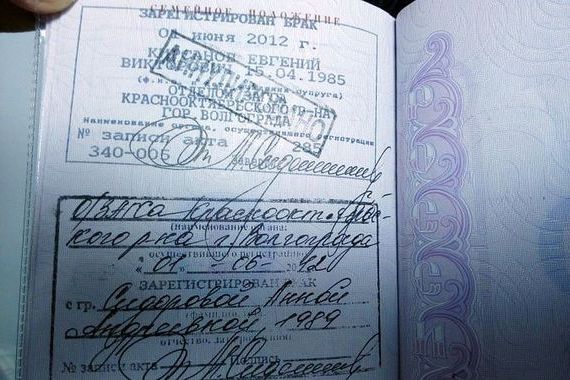 СЕМЕЙНОЕ ПОЛОЖЕНИЕ
ЗАРЕГИСТРИРОВАН БРАК
01 июня 2012 г.
ЕВГЕНИЙ
15.04.1985
(ф.и.о. супруга)
ОТДЕЛОМ ЗАГСА
КРАСНООКТЯБРЬСКОГО Р-НА
ГОР. ВОЛГОГРАДА
Наименование органа, осуществившего регистрацию
№ записи акта 285
340-006
О/ЗАГСа Краснооктябрьс-
кого р-на г. Волгограда
(наименование органа,
осуществившего регистрацию)
« 01 » - 06 - 2012
ЗАРЕГИСТРИРОВАН БРАК
с гр. Сидоровой Анной
Андреевной, 1989
отчество, дата рождения)
№ записи акта Подпись